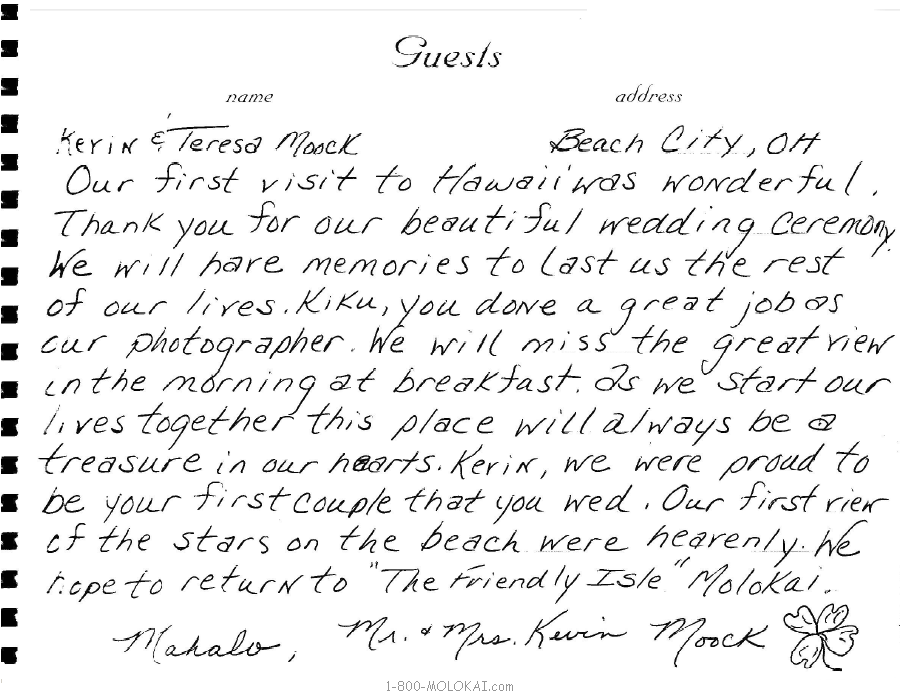 Guests
name address
Kevin & Teresa Moock Beach City, OH
Our first visit to Hawaii was wonderful.
Thank you for our beautiful wedding ceremony.
We will have memories to last us the rest
of our lives. Kiku, you done a great job as
our photographer. We will miss the great view
in the morning at breakfast. As we start our
lives together this place will always be a
treasure in our hearts. Kevin, we were proud to
be your first couple that you wed. Our first view
of the stars on the beach were heavenly. We
hope to return to "The Friendly Isle" Molokai.
Mahalo, Mr. & Mrs. Kevin Moock
1-800-MOLOKAI.com